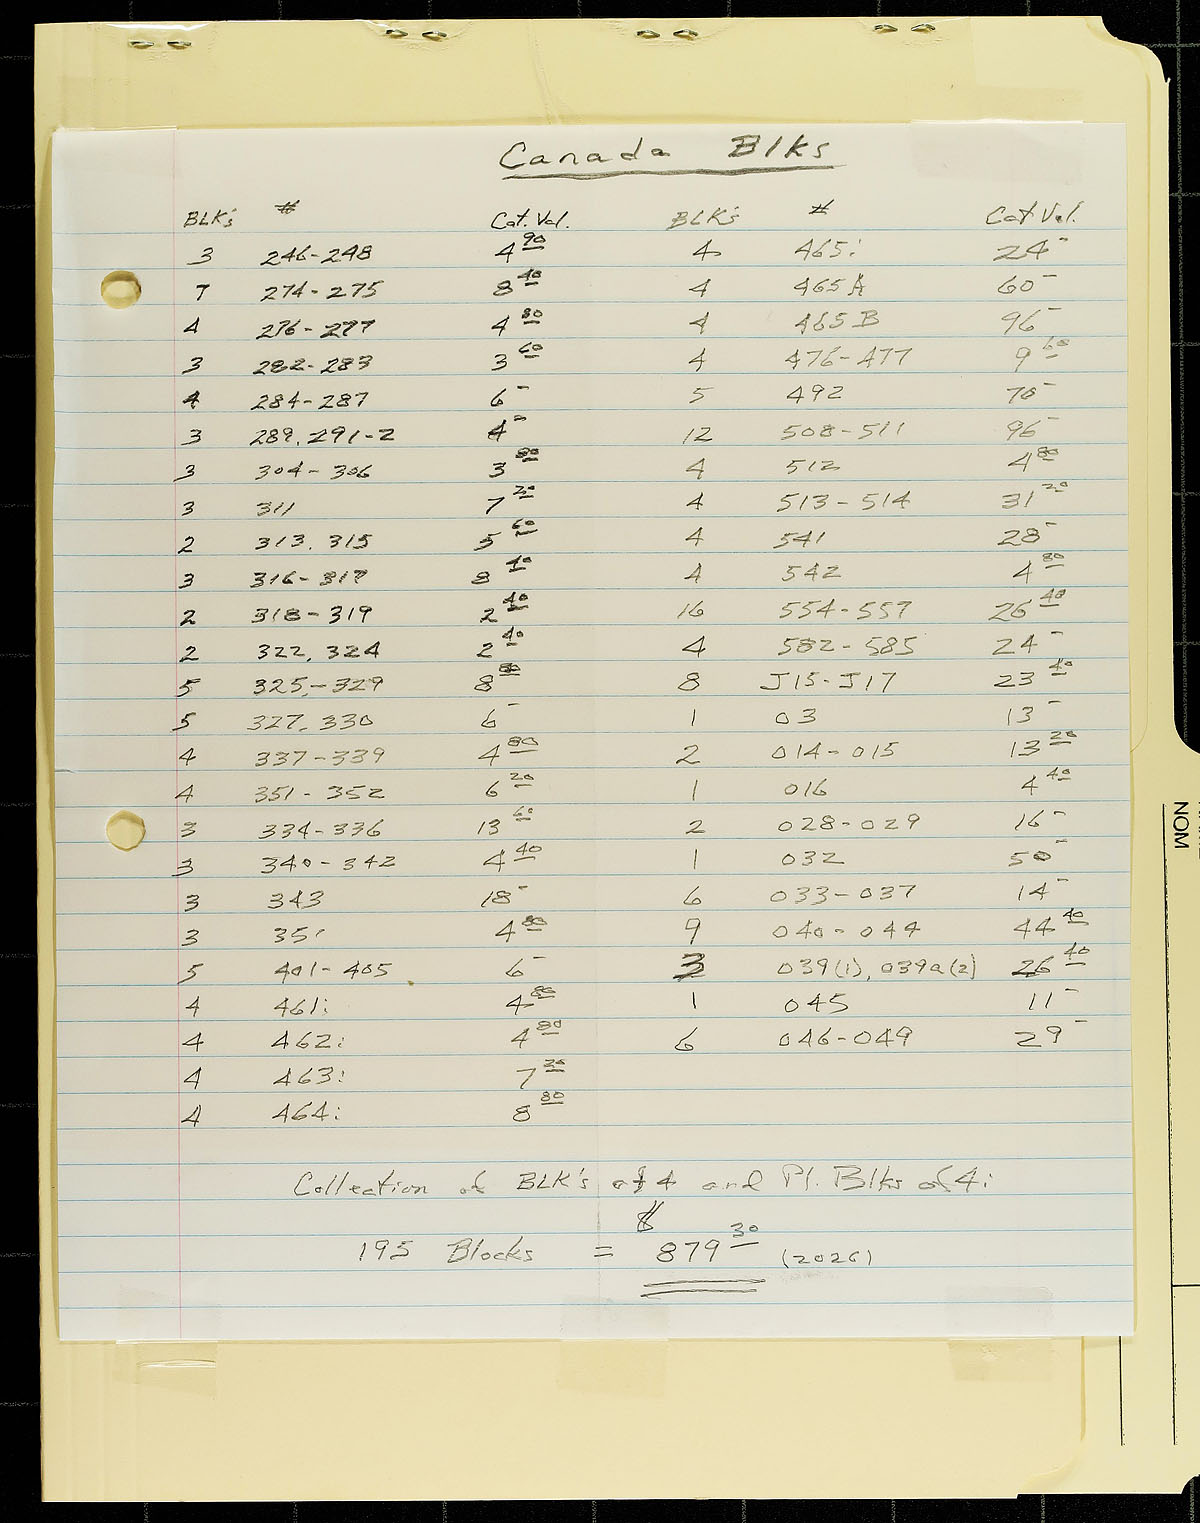 Canada Blks
BLK's # Cat. Val. BLK's # Cat. Val.
3 246-248 4 90 4 465i 24 -
7 274-275 8 40 4 465A 60 -
4 276-277 4 80 4 465B 96 -
3 282-283 3 60 4 476-477 9 60
4 284-287 6 - 5 492 70 -
3 289, 291-2 4 - 12 508-511 96 -
3 304-306 3 80 4 512 4 80
3 311 7 20 4 513-514 31 20
2 313, 315 5 60 4 541 28 -
3 316-317 8 40 4 542 4 80
2 318-319 2 40 16 554-557 26 40
2 322, 324 2 40 4 582-585 24 -
5 325-329 8 80 8 J15-J17 23 40
5 327, 330 6 - 1 03 13 -
4 337-339 4 80 2 014-015 13 20
4 351-352 6 20 1 016 4 40
3 334-336 13 60 2 028-029 16 -
3 340-342 4 40 1 032 50 -
3 343 18 - 6 033-037 14 -
3 351 4 80 9 040-044 44 40
5 401-405 6 - 3 039(1), 039a(2) 26 40
4 461i 4 80 1 045 11 -
4 462i 4 80 6 046-049 29 -
4 463i 7 20
4 464i 8 80
Collection of BLK's of 4 and Pl. Blks of 4:
$
195 Blocks = 879 30 (2026)
NOM